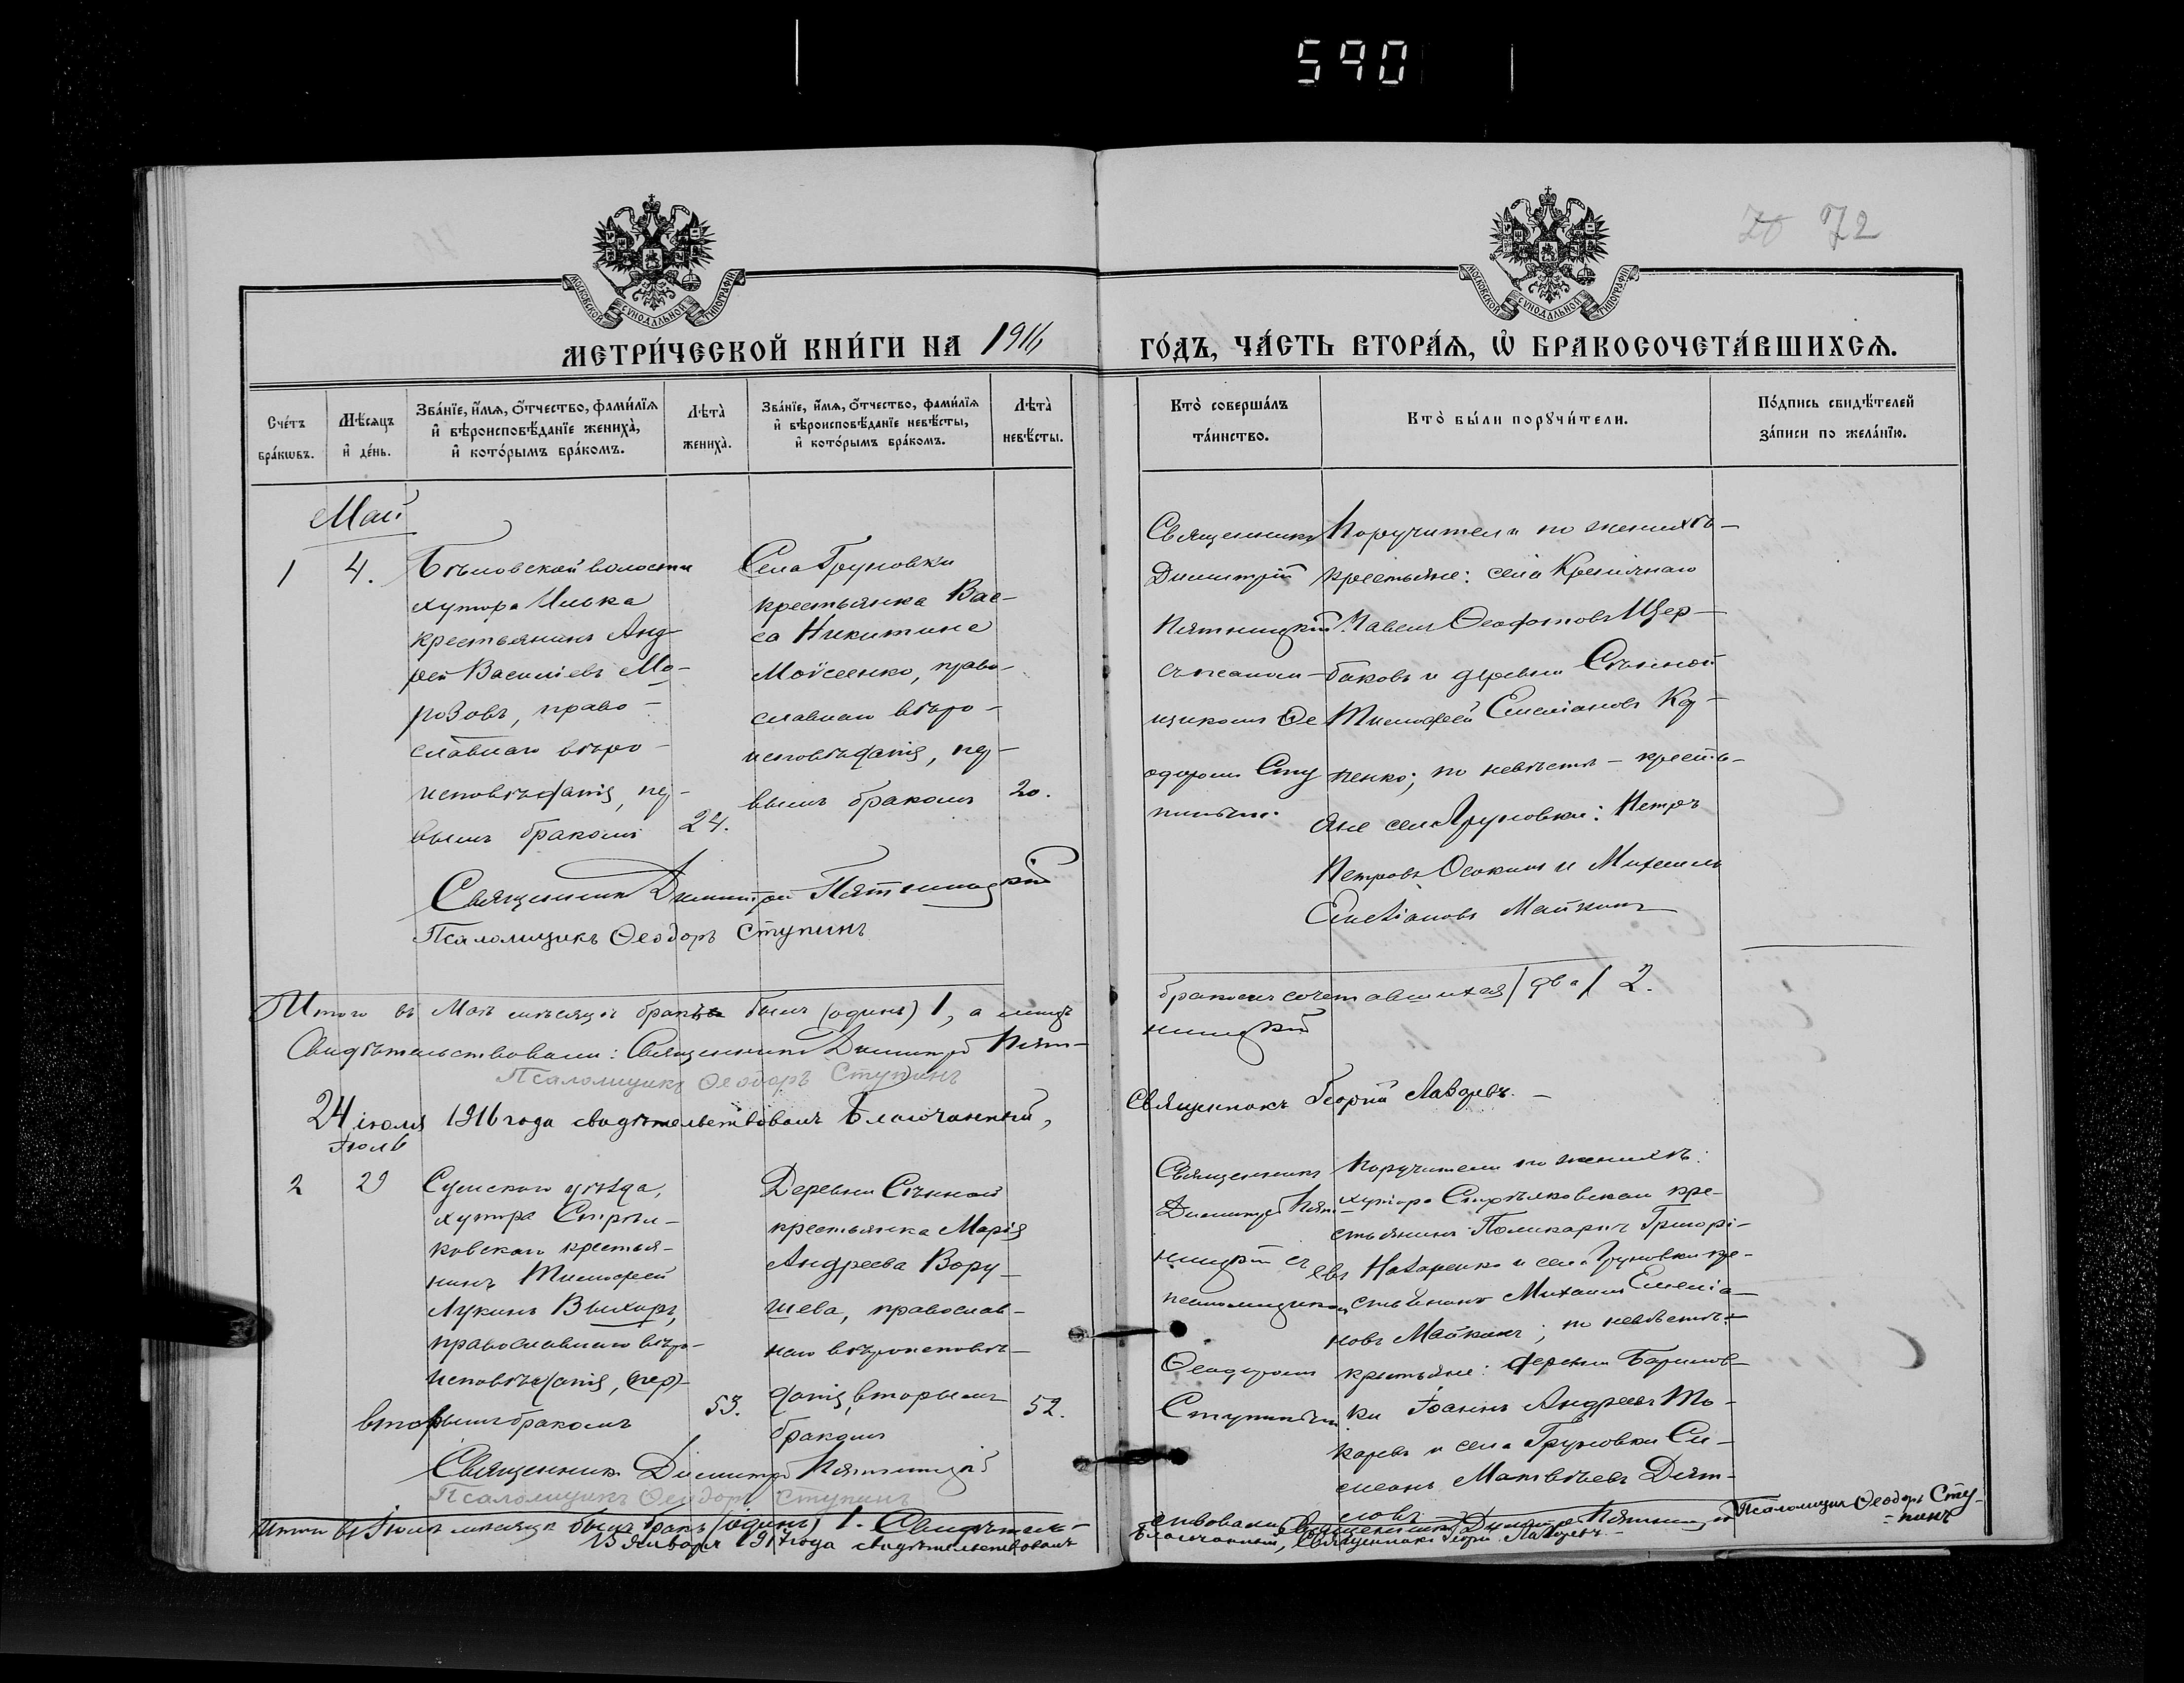 590
20 72
МОСКОВСКОЙ СУНОДАЛЬНОЙ ТИПОГРАФІИ
МОСКОВСКОЙ СУНОДАЛЬНОЙ ТИПОГРАФІИ
МЕТРИ́ЧЕСКОЙ КНИ́ГИ НА 1916
ГО́ДЪ, ЧА́СТЬ ВТОРА́Ѧ, Ѡ҆ БРАКОСОЧЕТА́ВШИХСѦ.
Сче́тъ бра́кѡвъ.
Мѣ́сяцъ и҆ де́нь.
Зва́нїе, и҆́мѧ, ѻ҆́тчество, фами́лїѧ и҆ вѣроисповѣ́данїе жениха̀, и҆ кото́рымъ бра́комъ.
Лѣта̀ жениха̀.
Зва́нїе, и҆́мѧ, ѻ҆́тчество, фами́лїѧ и҆ вѣроисповѣ́данїе невѣ́сты, и҆ кото́рымъ бра́комъ.
Лѣта̀ невѣ́сты.
Кто̀ соверша́лъ та́инство.
Кто̀ бы́ли порꙋчи́тели.
По́дпись свидѣ́телей за́писи по жела́нїю.
Май
1
4.
Бѣловской волости
хутора Илька
крестьянинъ Анд-
рей Василіевъ Мо-
розовъ, право-
славнаго вѣро-
исповѣданія, пер-
вымъ бракомъ
24.
Села Груновки
крестьянка Вас-
са Никитина
Мойсеенко, право-
славнаго вѣро-
исповѣданія, пер-
вымъ бракомъ
20.
Священникъ
Димитрій
Пятницкій
съ псалом-
щикомъ Ѳе
одоромъ Сту
пинымъ.
Поручители по женихѣ-
крестьяне: села Кренична­го
Павелъ Ѳеофановъ Щер-
баковъ и деревни Сѣнной
Тимофей Емеліановъ Ку-
пенко; по невѣстѣ - кресть-
яне села Груновки: Петръ
Петровъ Осокинъ и Михаилъ
Емеліановъ Майкинъ
Священникъ Димитрій Пятницкій
Псаломщикъ Ѳеодоръ Ступинъ
Итого въ Маѣ мѣсяцѣ бракъ былъ (одинъ) 1, а лицъ
бракомъ сочетавшихся (два) 2.
Свидѣтельствовали: Священникъ Димитрій Пят-
ницкій
Псаломщикъ Ѳеодоръ Ступинъ
24 іюля 1916 года свидѣтельствовалъ Благочинный,
Священникъ Георгій Лазаревъ. -
Іюль
2
29
Сумскаго уѣзда,
хутора Стрѣли-
ковскаго крестья-
нинъ Тимофей
Лукинъ Вихорь,
православнаго вѣро-
исповѣданія, (пер)-
вторымъ бракомъ
53.
Деревни Сѣнной
крестьянка Марія
Андреева Вору-
шева, православ-
наго вѣроисповѣ-
данія, вторымъ
бракомъ
52.
Священникъ
Димитрій Пят
ницкій съ
псаломщиком
Ѳеодоромъ
Ступинымъ
Поручители по женихѣ:
хутора Стрѣлковскаго кре-
стьянинъ Поликарпъ Григорі-
евъ Назаренко и села Груновки кре-
стьянинъ Михаилъ Емеліа-
новъ Майкинъ; по невѣстѣ:-
крестьяне: деревни Баринов-
ки Іоаннъ Андреевъ То-
каревъ и села Груновки Си-
меонъ Матвѣевъ Дят-
ловъ
Священникъ Димитрій Пятницкій
Псаломщикъ Ѳеодоръ Ступинъ
Итого въ Іюлѣ мѣсяцѣ былъ бракъ (одинъ) 1. Свидѣтель-
ствовали: Священникъ Димитрій Пятницкій
Псаломщикъ Ѳеодоръ Сту-
-пинъ
13 Января 1917 года свидѣтельствовалъ
Благочинный, Священникъ Георгій Лазаревъ -